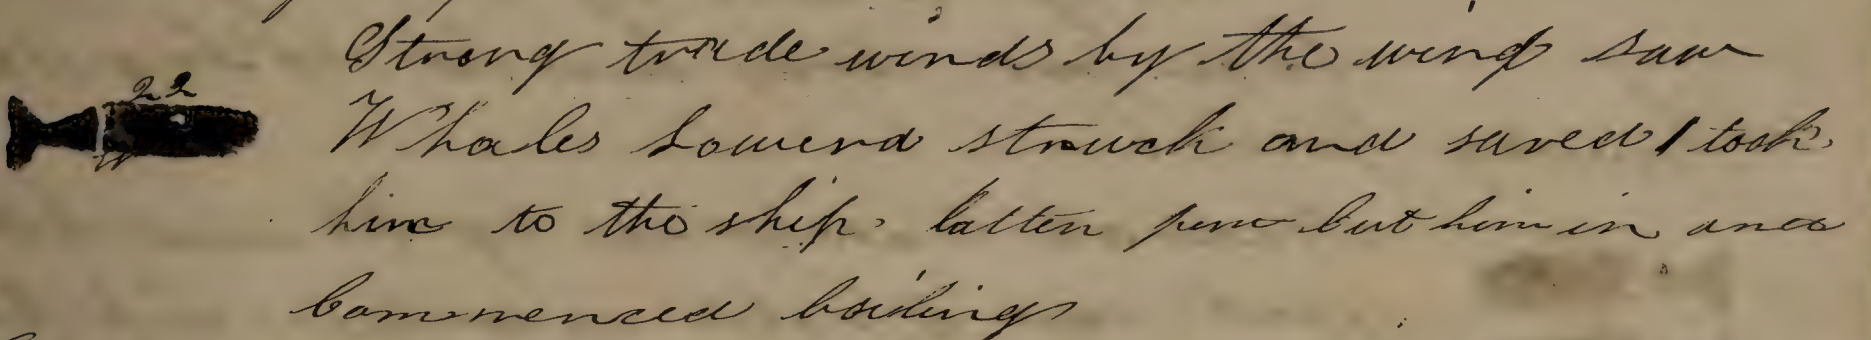 Strong trade winds by the wind saw
22
Whales Lowerd struck and saved 1 took
him to the ship. latten part Cut him in and
Commenced boiling